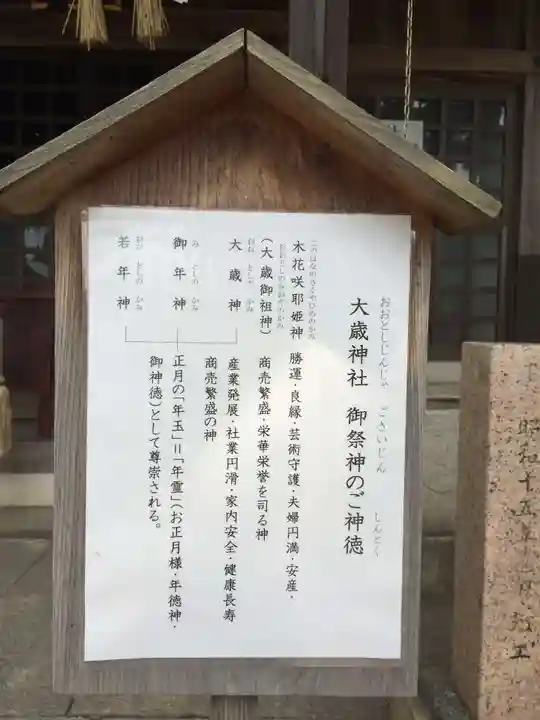 おおとしじんじゃ ごさいじん しんとく
大歳神社 御祭神のご神徳
このはなのさくやひめのかみ
木花咲耶姫神 勝運・良縁・芸術守護・夫婦円満・安産・
(大歳御祖神) 商売繁盛・栄華栄誉を司る神
おお としの かみ
大歳神 産業発展・社業円滑・家内安全・健康長寿
商売繁盛の神
み としの かみ
御年神 正月の「年玉」=「年霊」(お正月様・年徳神・
御神徳)として尊崇される。
わか としの かみ
若年神
昭和十五年